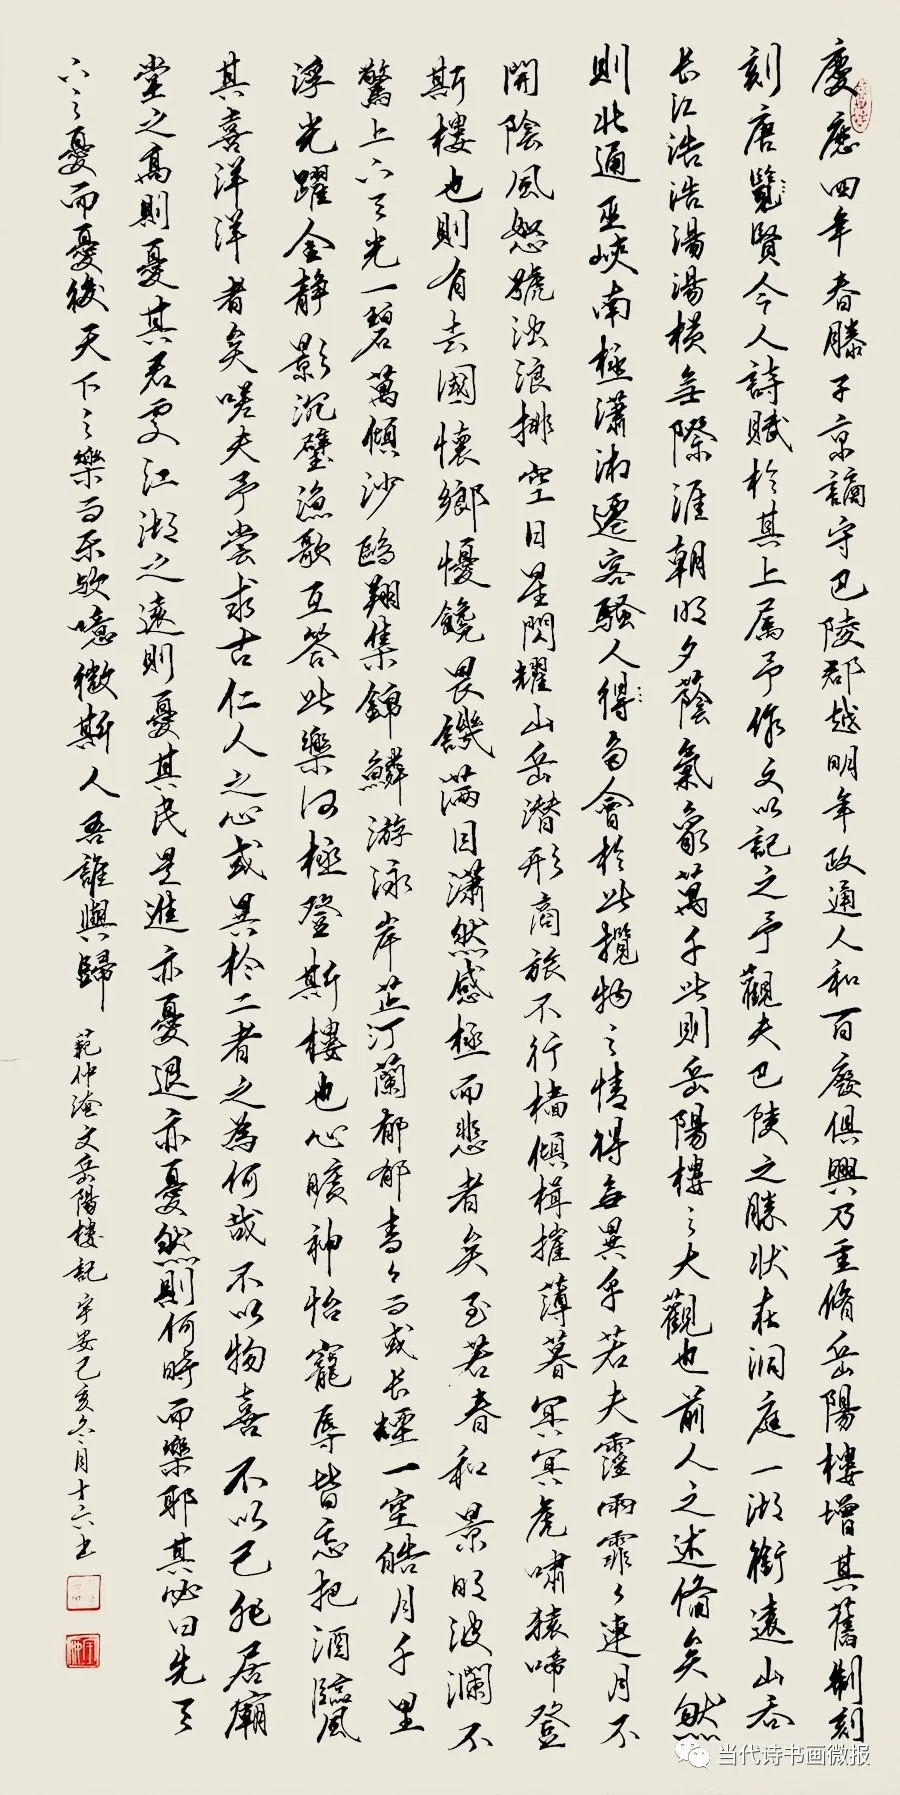 慶應四年春滕子京謫守巴陵郡越明年政通人和百廢俱興乃重脩岳陽樓增其舊制刻
刻唐覽賢今人詩賦於其上属予作文以記之予觀夫巴陵之勝狀在洞庭一湖銜遠山吞
长江浩浩湯湯横無際涯朝暉夕蔭氣象萬千此則岳陽樓之大觀也前人之述俻矣然
則北通巫峽南極瀟湘遷客騷人得多會於此攬物之情得無異乎若夫霪雨霏霏連月不
開陰風怒號浊浪排空日星閃耀山岳潜形商旅不行檣傾楫摧薄暮冥冥虎嘯猿啼登
斯樓也則有去國懷鄉憂饞畏譏满目瀟然感極而悲者矣至若春和景明波瀾不
驚上下天光一碧萬傾沙鷗翔集錦鱗游泳岸芷汀蘭郁郁青青而或长煙一空皓月千里
浮光躍金静影沉璧漁歌互答此樂何極登斯樓也心曠神怡寵辱皆忘把酒臨風
其喜洋洋者矣嗟夫予嘗求古仁人之心或異於二者之為何哉不以物喜不以己悲居廟
堂之高則憂其君處江湖之遠則憂其民是進亦憂退亦憂然則何時而樂耶其必曰先天
下之憂而憂後天下之樂而樂歟噫微斯人吾誰與歸
范仲淹文岳陽樓記 宇安己亥六月十六书
当代诗书画微报